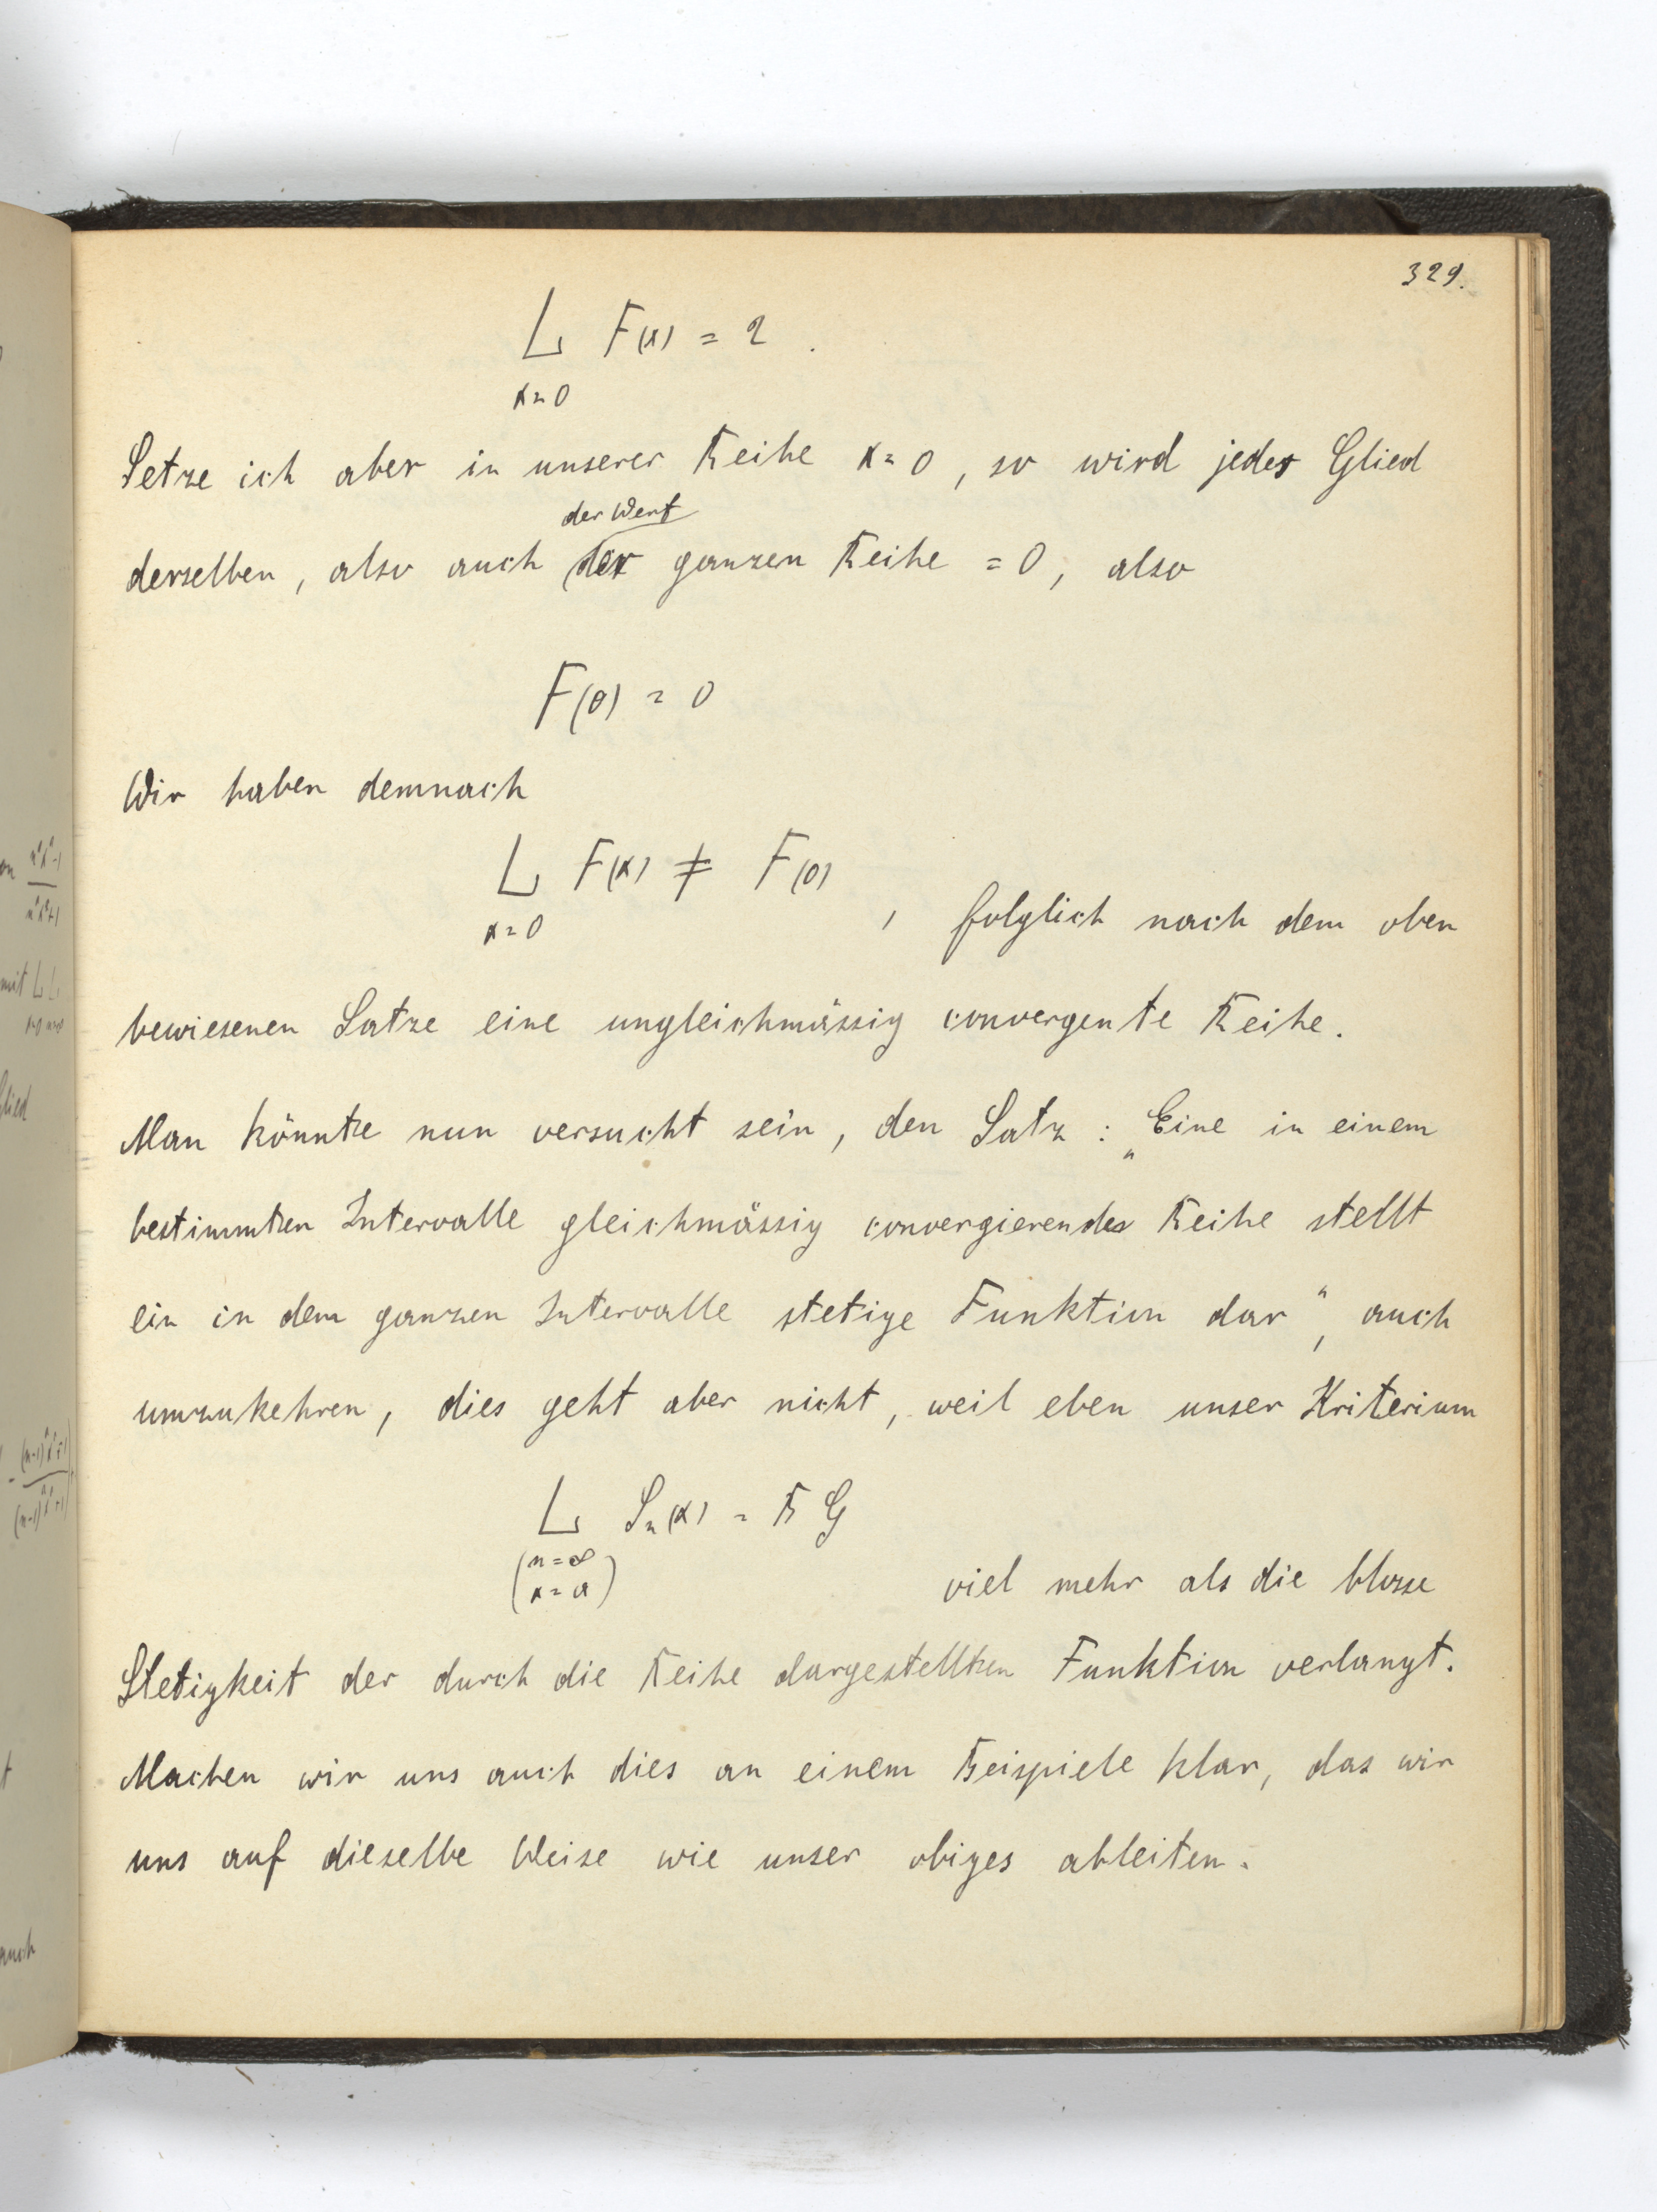 329.
L F(x) = 2 .
x=0
Setze ich aber in unserer Reihe x=0, so wird jedes Glied
der Wert
derselben, also auch der ganzen Reihe = 0, also
F(0) = 0
Wir haben demnach
L F(x) ≠ F(0)
x=0
, folglich nach dem oben
bewiesenen Satze eine ungleichmässig convergente Reihe.
Man könnte nun versucht sein, den Satz : „Eine in einem
bestimmten Intervalle gleichmässig convergierende Reihe stellt
ein in dem ganzen Intervalle stetige Funktion dar“, auch
umzukehren, dies geht aber nicht, weil eben unser Kriterium
L Sn(x) = B G
(n=∞
x=a)
viel mehr als die blosse
Stetigkeit der durch die Reihe dargestellten Funktion verlangt.
Machen wir uns auch dies an einem Beispiele klar, das wir
uns auf dieselbe Weise wie unser obiges ableiten.